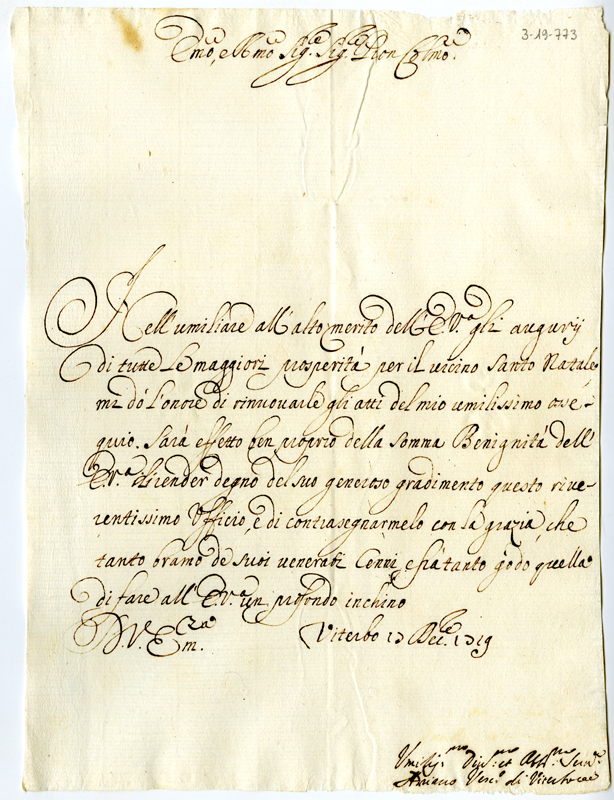 3-19-773
Emo, e Rmo Sig.re Sig.re Pron Colmo.
Nell'umiliare all'alto merito dell'E.V.a gli augurij
di tutte le maggiori prosperità per il vicino Santo Natale
mi dò l'onore di rinnovarle gli atti del mio umilissimo osse-
quio. Sarà effetto ben proprio della somma Benignità dell'
E.V.a il render degno del suo generoso gradimento questo rive-
rentissimo Ufficio, e di contrasegnarmelo con la grazia, che
tanto bramo de suoi venerati Cenni, e frà tanto godo quella
di fare all'E.V.a un profondo inchino
D.V.Em.za Viterbo Dec.re
Umilis.mo Div.
Vesc.o di Viterbo